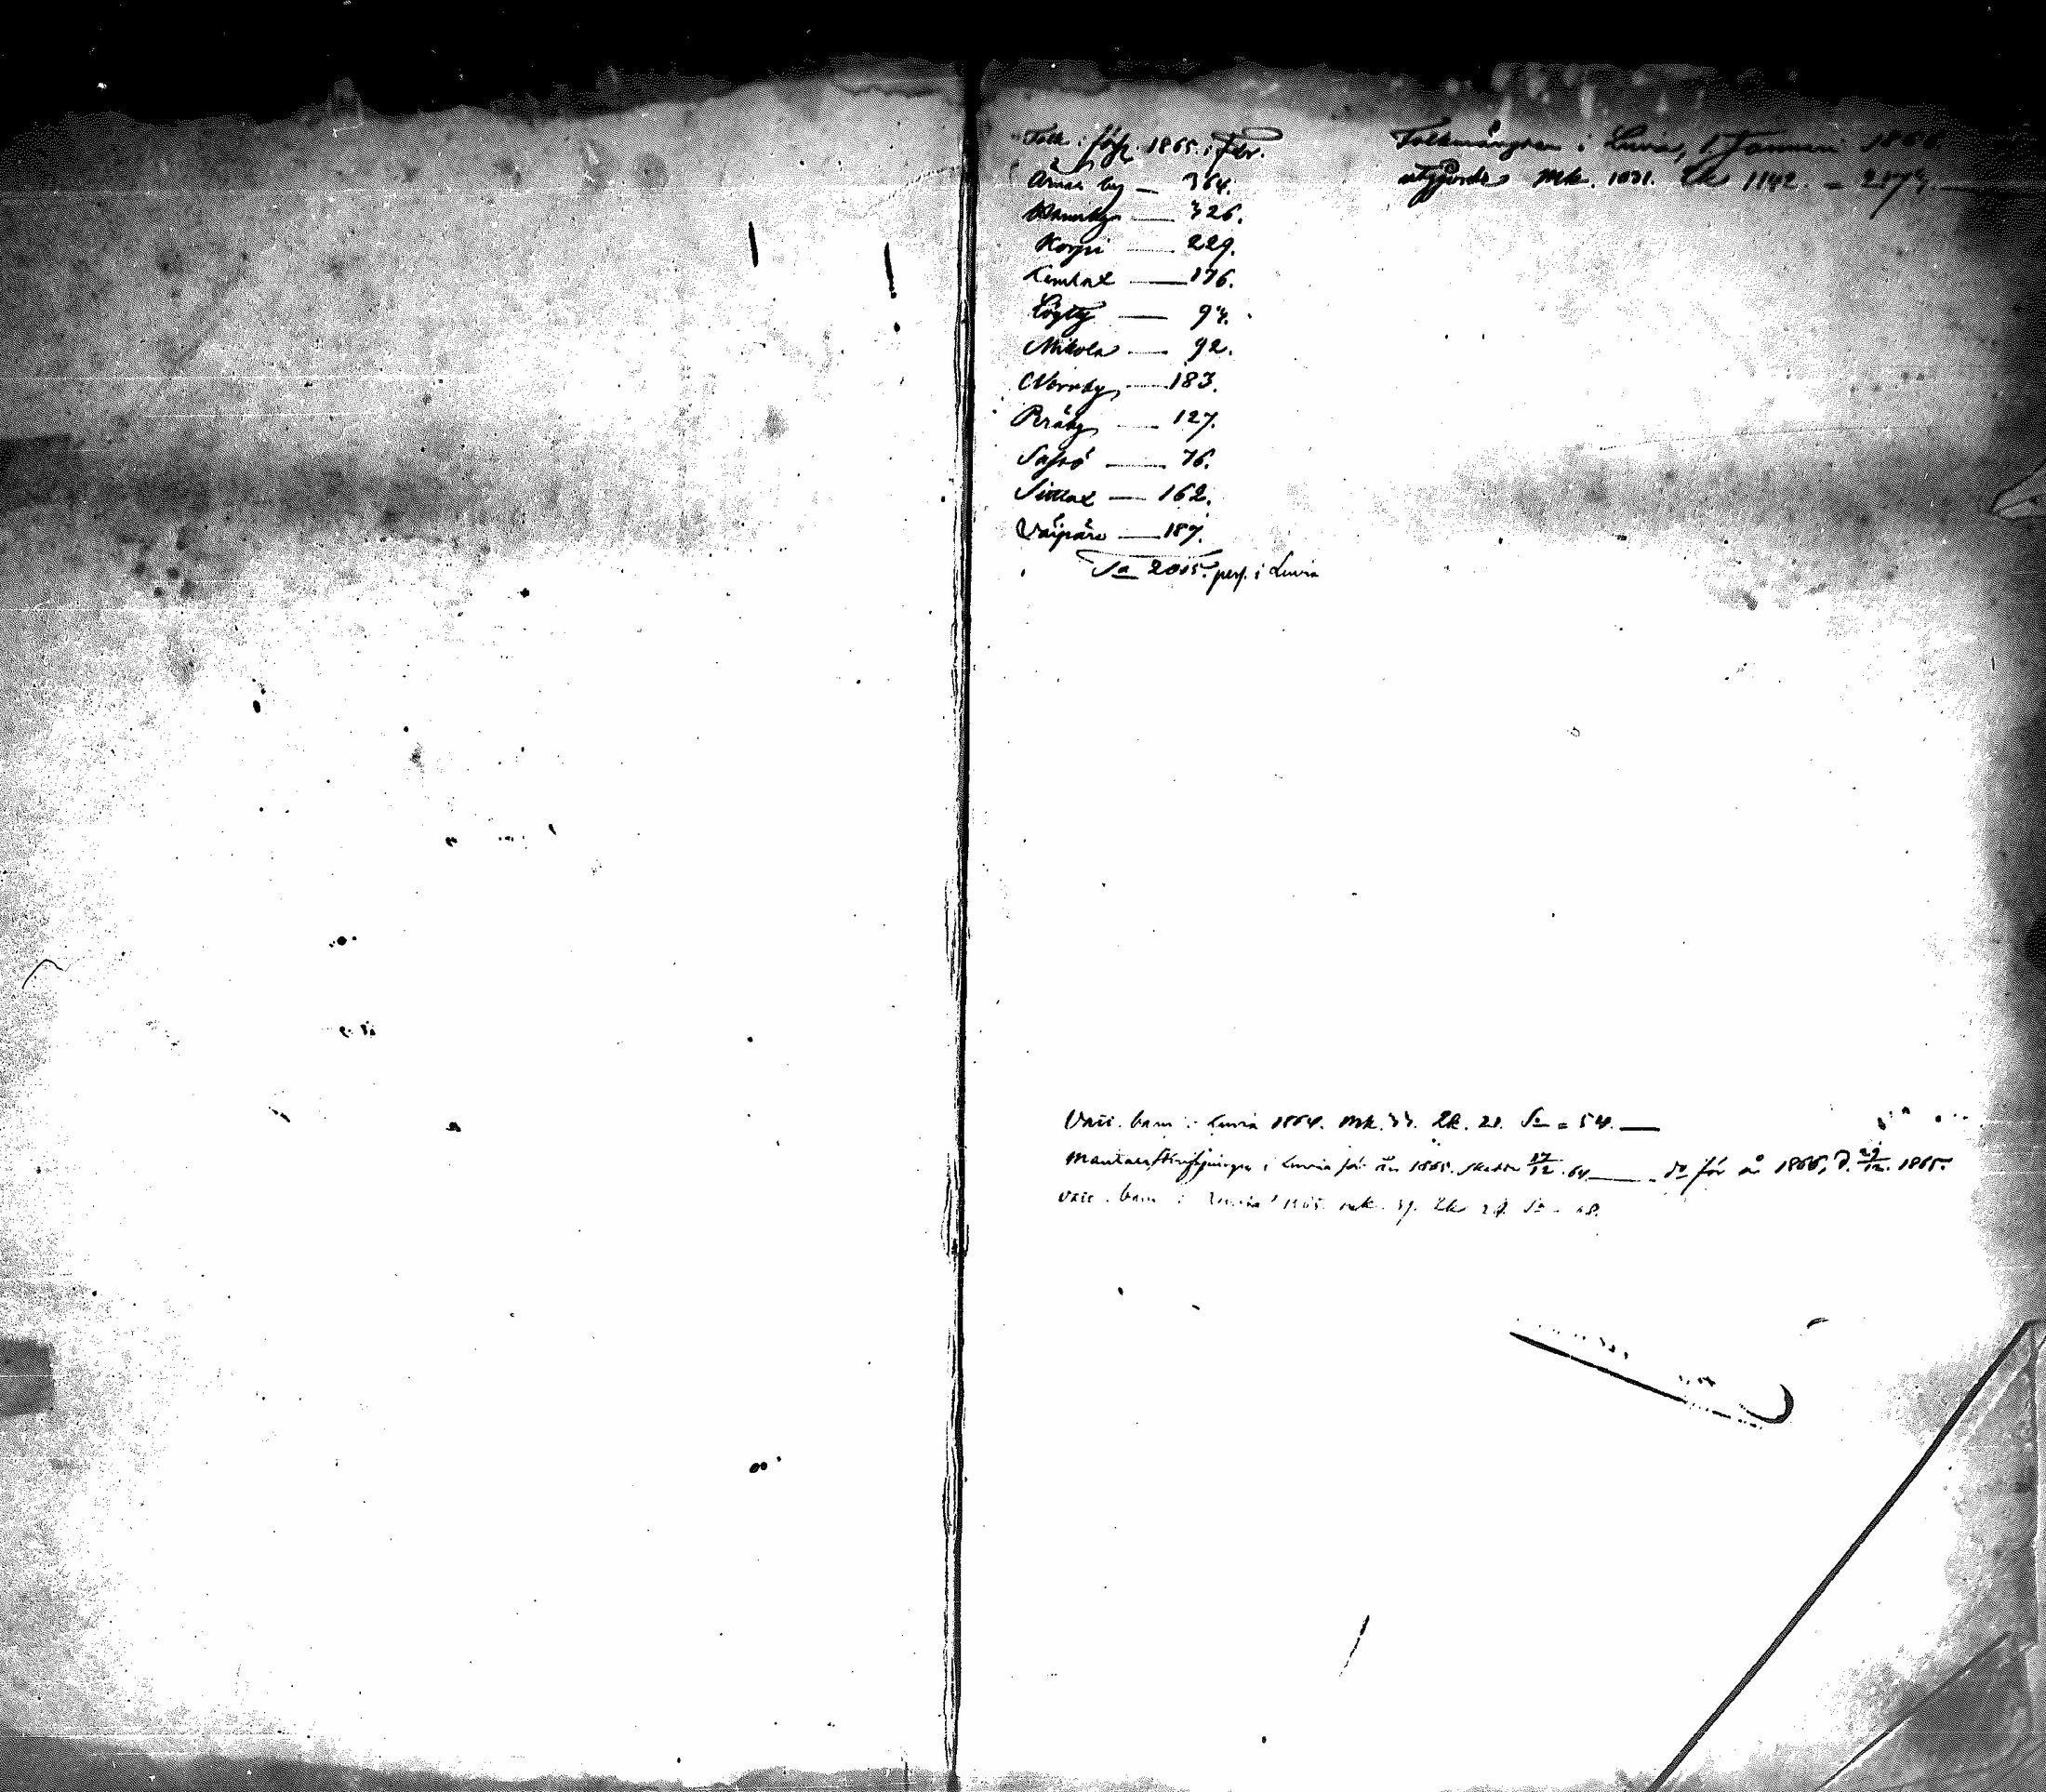 Folk i förs. 1865 i Febr.
Ånäs by — 364.
Hannby — 326.
Korpi — 229.
Lemlax — 176.
Löyty — 93.
Mikola — 92.
Norrby — 183.
Peräby — 127.
Sassö — 76.
Sittlax — 162.
Väipäre — 187.
Sa 2015. pers. i Luvia
Folkmängden i Luvia, 1 Januari 1866
utgjorde Mk. 1031. Qk 1142. = 2173. —
Vacc. barn i Luvia 1864. Mk. 33. Qk. 21. Sa = 54. —
Mantalsskrifningen i Luvia för år 1865. skedde 17/12 .64 — Do för år 1866, d. 29/12. 1865.
Vacc. barn i Luvia 1865. mk. 39. Qk 29. Sa = 68.